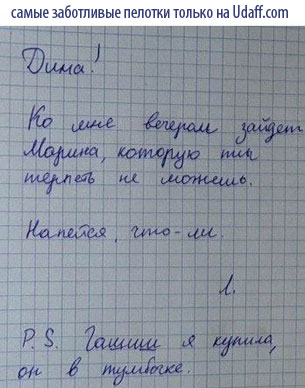 самые заботливые пелотки только на Udaff.com
Дима!
Ко мне вечером зайдет
Марина, которую ты
терпеть не можешь.
Напейся, что-ли.
Л.
P.S. Гашиш я купила,
он в тумбочке.